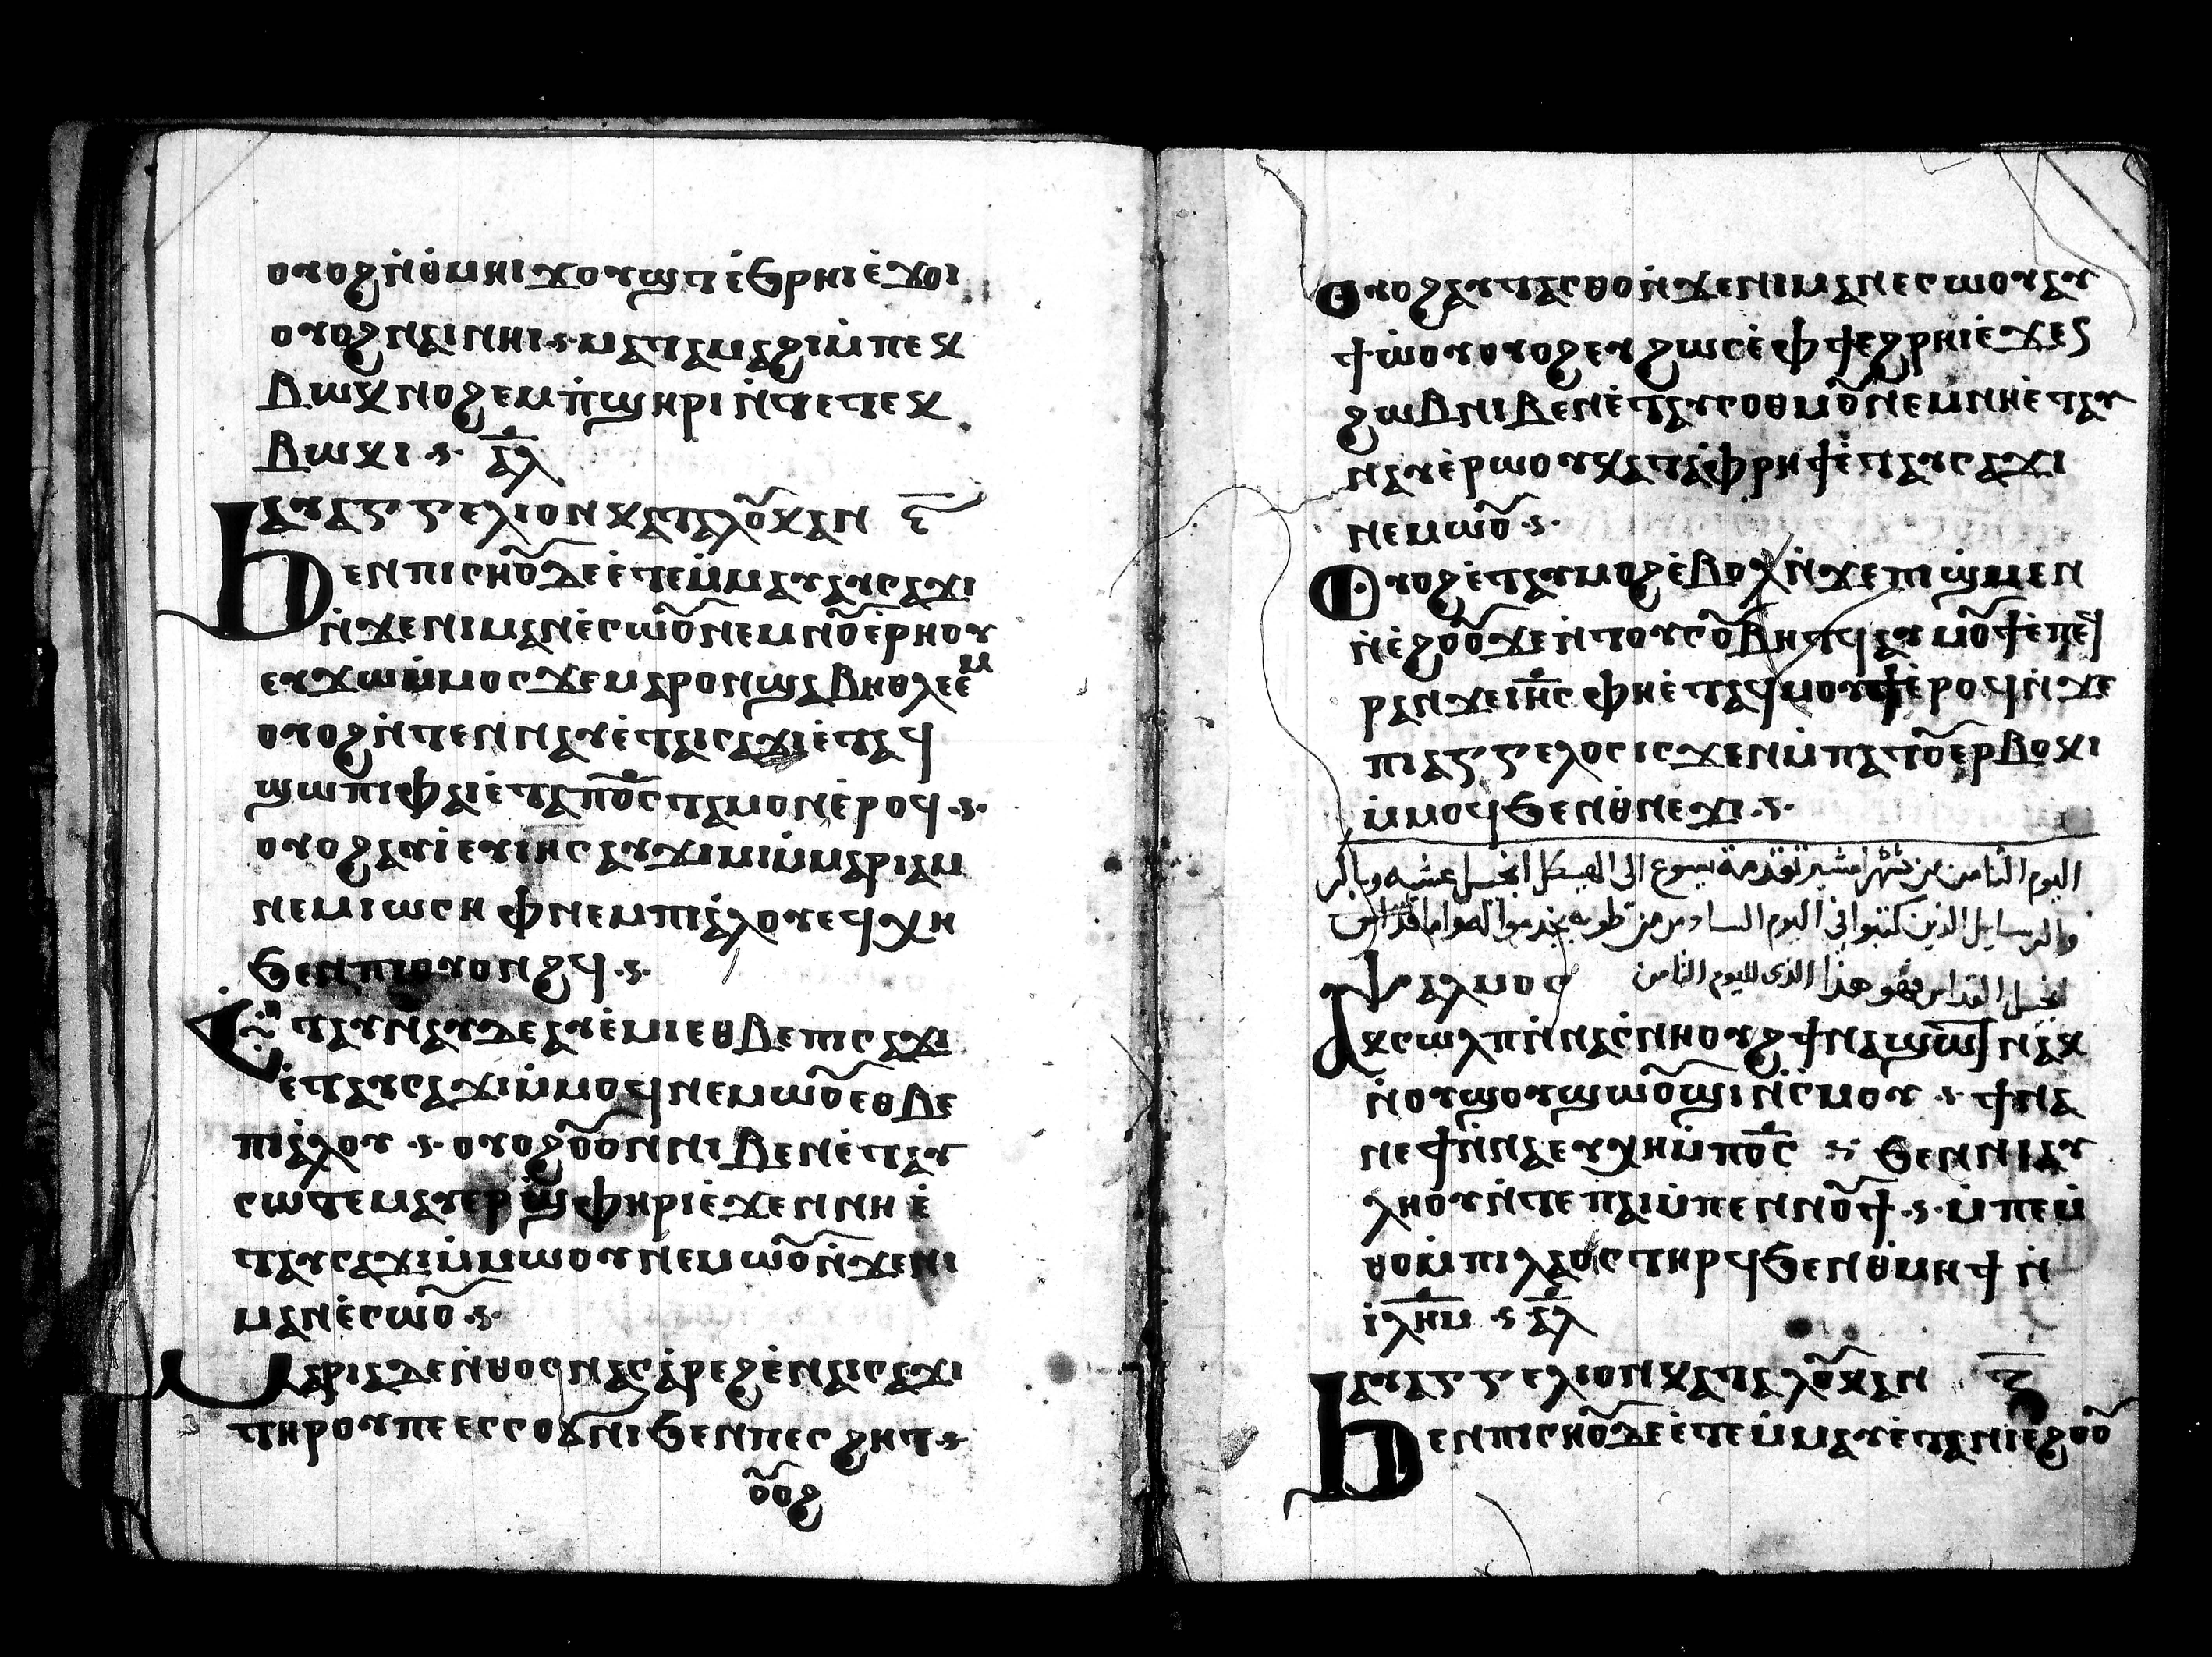 ⲟⲩⲟϩ ⲛ̀ⲑⲙⲏⲓ ϫⲟⲩϣⲧ ⲉ̀ϧⲣⲏⲓ ⲉ̀ϫⲟⲓ
ⲟⲩⲟϩ ⲛⲁⲓ ⲛⲏⲓ ·ⲋ· ⲙⲁⲧⲁⲙⲁϩⲓ ⲙ̀ⲡⲉⲕ
ⲃⲱⲕ ⲛⲟϩⲉⲙ ⲡ̀ϣⲏⲣⲓ ⲛ̀ⲧⲉ ⲧⲉⲕ
ⲃⲱⲕⲓ ·ⲋ· ⲁ̅ⲗ̅
ⲉⲩⲁⲅⲅⲉⲗⲓⲟⲛ ⲕⲁⲧⲁ ⲗⲟⲩⲕⲁⲛ
ϧⲉⲛ ⲡⲓⲥⲏⲟⲩ ⲇⲉ ⲉ̀ⲧⲉⲙ̀ⲙⲁⲩ ⲁⲩⲥⲁϫⲓ
ⲛ̀ϫⲉ ⲛⲓⲙⲁⲛⲉ̀ⲥⲱⲟⲩ ⲛⲉⲙ ⲛⲟⲩⲉ̀ⲣⲏⲟⲩ
ⲉⲩϫⲱ ⲙ̀ⲙⲟⲥ ϫⲉ ⲙⲁⲣⲟⲛ ϣⲁ ⲃⲏⲑⲗⲉⲉⲙ
ⲟⲩⲟϩ ⲛ̀ⲧⲉⲛⲛⲁⲩ ⲉ̀ⲡⲁⲓⲥⲁϫⲓ ⲉ̀ⲧⲁϥ
ϣⲱⲡⲓ ⲫⲁⲓ ⲉ̀ⲧⲁ ⲡⲟ̅ⲥ̅ ⲧⲁⲙⲟⲛ ⲉ̀ⲣⲟϥ ·ⲋ·
ⲟⲩⲟϩ ⲁⲩⲓ̀ ⲉⲩⲓⲏⲥ ⲁⲩϫⲓⲙⲓ ⲙ̀ⲙⲁⲣⲓⲁⲙ
ⲛⲉⲙ ⲓⲱⲥⲏⲫ ⲛⲉⲙ ⲡⲓⲁ̀ⲗⲟⲩ ⲉϥⲭⲏ
ϧⲉⲛ ⲡⲓⲟⲩⲟⲛϩϥ ·ⲋ·
ⲉⲧⲁⲩⲛⲁⲩ ⲇⲉ ⲁⲩⲉ̀ⲙⲓ ⲉⲑⲃⲉ ⲡⲓⲥⲁϫⲓ
ⲉ̀ⲧⲁⲩⲥⲁϫⲓ ⲙ̀ⲙⲟϥ ⲛⲉⲙⲱⲟⲩ ⲉⲑⲃⲉ
ⲡⲓⲁ̀ⲗⲟⲩ ·ⲋ· ⲟⲩⲟϩ ⲟⲩⲟⲛ ⲛⲓⲃⲉⲛ ⲉ̀ⲧⲁⲩ
ⲥⲱⲧⲉⲙ ⲁⲩⲉⲣϣ̀ⲫⲏⲣⲓ ⲉ̀ϫⲉⲛ ⲛⲏ ⲉ̀
ⲧⲁⲩⲥⲁϫⲓ ⲙ̀ⲙⲱⲟⲩ ⲛⲉⲙⲱⲟⲩ ⲛ̀ϫⲉ ⲛⲓ
ⲙⲁⲛⲉ̀ⲥⲱⲟⲩ ·ⲋ·
ⲙⲁⲣⲓⲁ ⲇⲉ ⲛ̀ⲑⲟⲥ ⲛⲁⲥⲁ̀ⲣⲉϩ ⲉ̀ⲛⲁⲓⲥⲁϫⲓ
ⲧⲏⲣⲟⲩ ⲡⲉ ⲉⲥⲥⲟϭⲛⲓ ϧⲉⲛ ⲡⲉⲥϩⲏⲧ ·ⲋ·
ⲟⲩⲟϩ
ⲟⲩⲟϩ ⲁⲩⲧⲁⲥⲑⲟ ⲛ̀ϫⲉ ⲛⲓⲙⲁⲛⲉⲥⲱⲟⲩ ⲁⲩ
ϯⲱ̀ⲟⲩ ⲟⲩⲟϩ ⲉⲩϩⲱⲥ ⲉ̀ⲫϯ ⲉϩⲣⲏⲓ ⲉ̀ϫⲉⲛ
ϩⲱⲃ ⲛⲓⲃⲉⲛ ⲉ̀ⲧⲁⲩⲥⲟⲑⲙⲟⲩ ⲛⲉⲙ ⲛⲏ ⲉ̀ⲧⲁⲩ
ⲛⲁⲩ ⲉ̀ⲣⲱⲟⲩ ⲕⲁⲧⲁ ⲫ̀ⲣⲏϯ ⲉ̀ⲧⲁⲩⲥⲁϫⲓ
ⲛⲉⲙⲱⲟⲩ ·ⲋ·
ⲟⲩⲟϩ ⲉ̀ⲧⲁⲩⲙⲟϩ ⲉ̀ⲃⲟⲗ ⲛ̀ϫⲉ ⲡⲓϣ̀ⲙⲉⲛ
ⲛ̀ⲉ̀ϩⲟⲟⲩ ϫⲉ ⲛ̀ⲧⲟⲩⲥⲟⲩⲃⲏⲧϥ ⲁⲩⲙⲟⲩϯ ⲉ̀ⲡⲉϥ
ⲣⲁⲛ ϫⲉ ⲓⲏ̅ⲥ̅ ⲫⲏ ⲉ̀ⲧⲁϥⲙⲟⲩϯ ⲉ̀ⲣⲟϥ ⲛ̀ϫⲉ
ⲡⲓⲁⲅⲅⲉⲗⲟⲥ ⲓⲥϫⲉⲛ ⲙ̀ⲡⲁⲧⲟⲩⲉⲣⲃⲟⲕⲓ
ⲙ̀ⲙⲟϥ ϧⲉⲛ ⲑ̀ⲛⲉϫⲓ ·ⲋ·
اليوم الثامن من شهر امشير تقدمة يسوع الى الهيكل انجيل عشيه وباكر
والرسايل الذين كتبوا في اليوم السادس من طوبه يخدموا لهو اما قداس
انجيل القداس فهو هذا الذى لليوم الثامن
ⲯⲁⲗⲙⲟⲥ
ⲁⲕⲥⲱⲗⲡ ⲛ̀ⲛⲁⲥ̀ⲛⲏⲟⲩϩ ϯⲛⲁϣⲱⲧ ⲛⲁⲕ
ⲛ̀ⲟⲩϣⲟⲩϣⲱⲟⲩϣⲓ ⲛ̀ⲥ̀ⲙⲟⲩ ·ⲋ· ϯⲛⲁ
ⲛⲉϯ ⲛ̀ⲛⲁⲉⲩⲭⲏ ⲙ̀ⲡⲟ̅ⲥ̅ ⲋ ϧⲉⲛ ⲛⲓⲁⲩ
ⲗⲏⲟⲩ ⲛ̀ⲧⲉ ⲡⲏⲓ ⲙ̀ⲡⲉⲛⲛⲟⲩϯ ·ⲋ· ⲙ̀ⲡⲉⲙ̀
ⲑⲟ ⲙ̀ⲡⲓⲗⲁⲟⲥ ⲧⲏⲣϥ ϧⲉⲛ ⲑ̀ⲙⲏϯ ⲛ̀
ⲓⲗ̅ⲏ̅ⲙ̅ ·ⲋ· ⲁ̅ⲗ̅
ⲉⲩⲁⲅⲅⲉⲗⲓⲟⲛ ⲕⲁⲧⲁ ⲗⲟⲩⲕⲁⲛ
ϧⲉⲛ ⲡⲓⲥⲏⲟⲩ ⲇⲉ ⲉ̀ⲧⲉⲙ̀ⲙⲁⲩ ⲉ̀ⲧⲁ ⲛⲓⲉϩⲟⲟⲩ